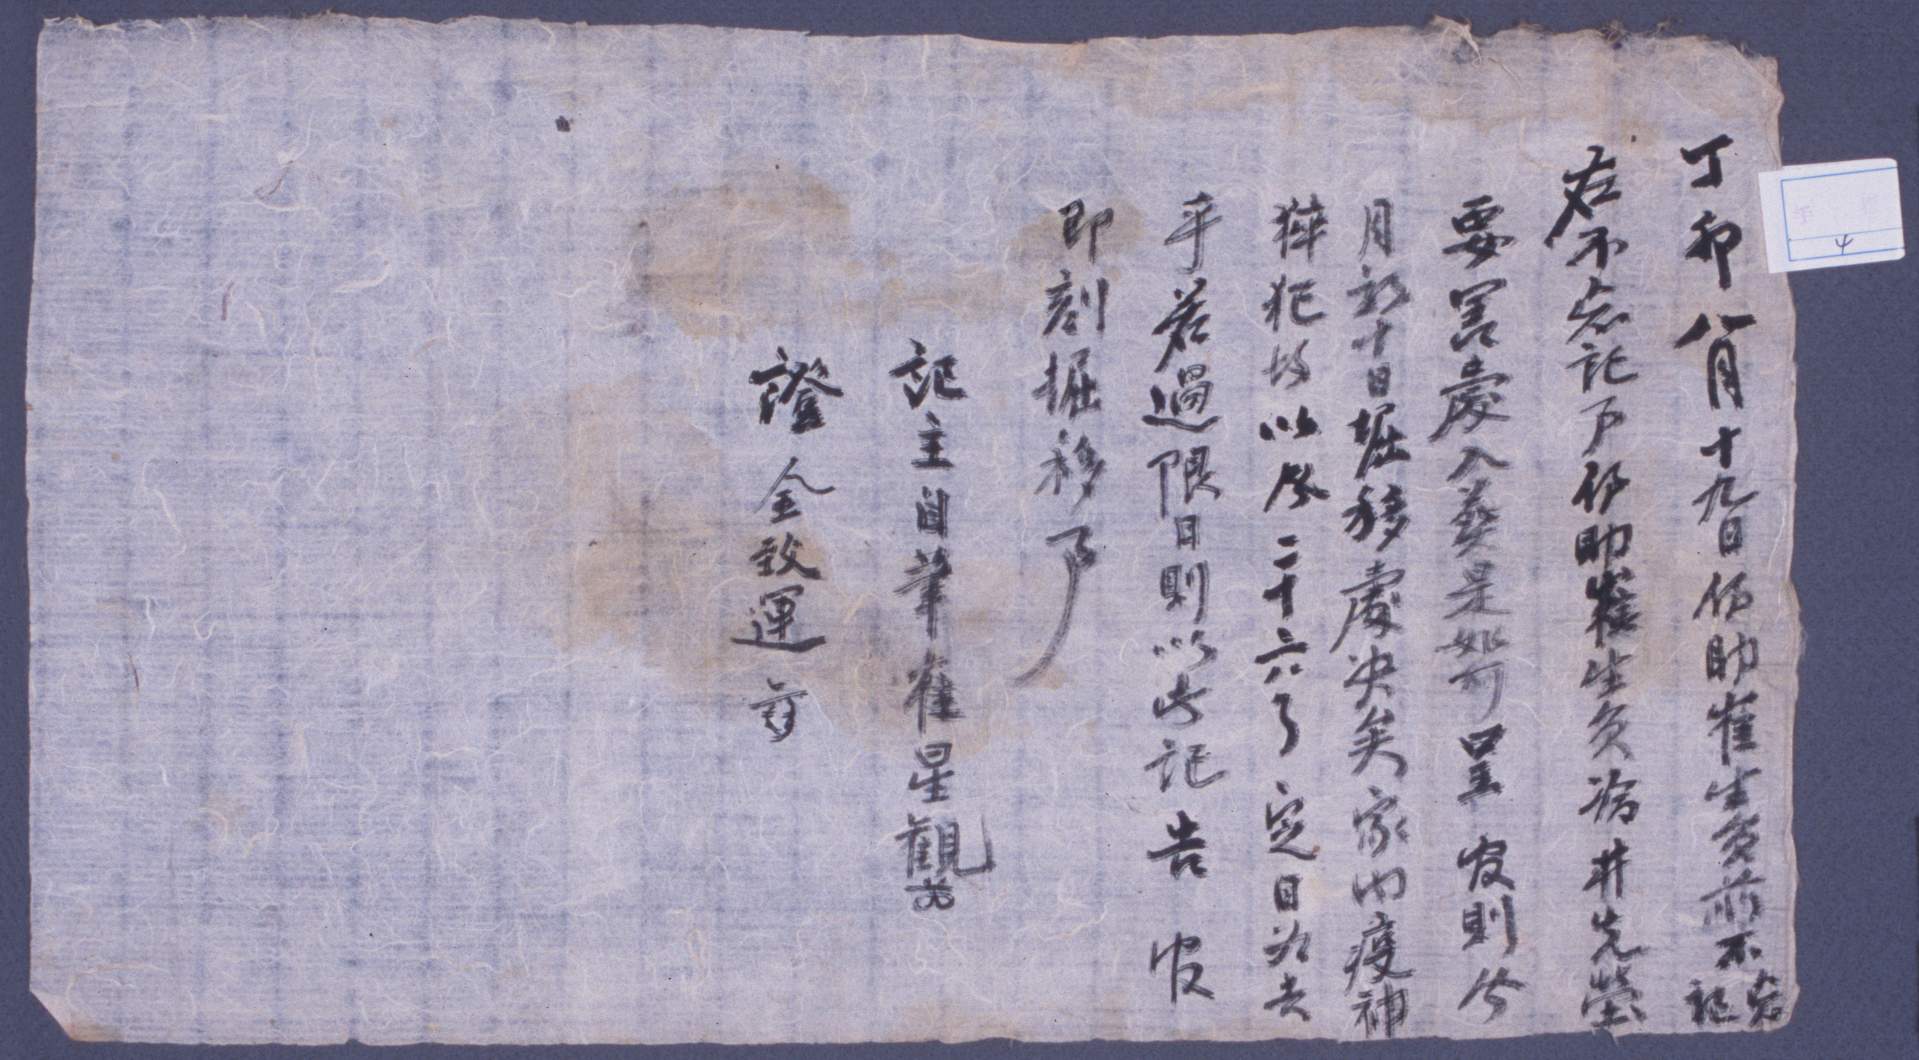 丁卯八月十九日 伊助崔生員前不忘記
右不忘記段伊助崔生員喪井先塋
要害處入葬是如可呈官則今
月初十日掘移處決矣家內疫神
猝犯故以今二十六了定日爲去
乎若過限日則以此記告官
卽刻掘移事
記主自筆崔星觀
證金致運
4